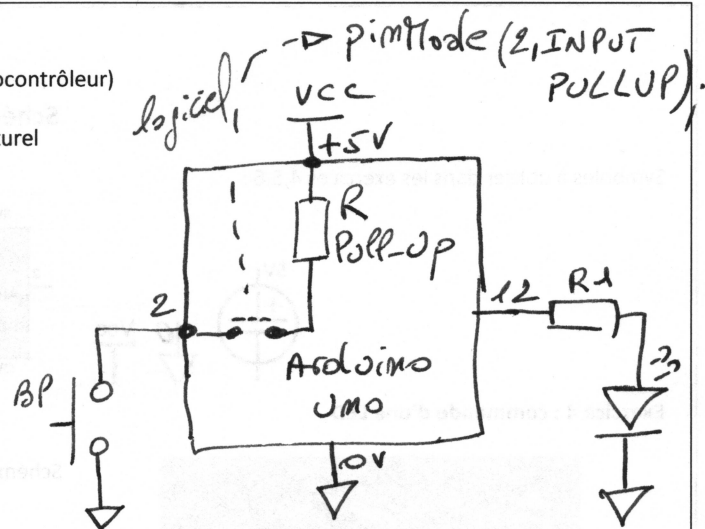 ocontrôleur)
turel
logiciel,
pinMode (2, INPUT
PULLUP);
VCC
+5V
R
Pull-Up
2
12
R1
BP
Arduino
uno
0V